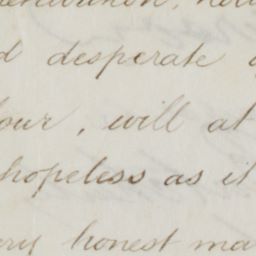 d desperate
our, will at
hopeless as it
ery honest ma